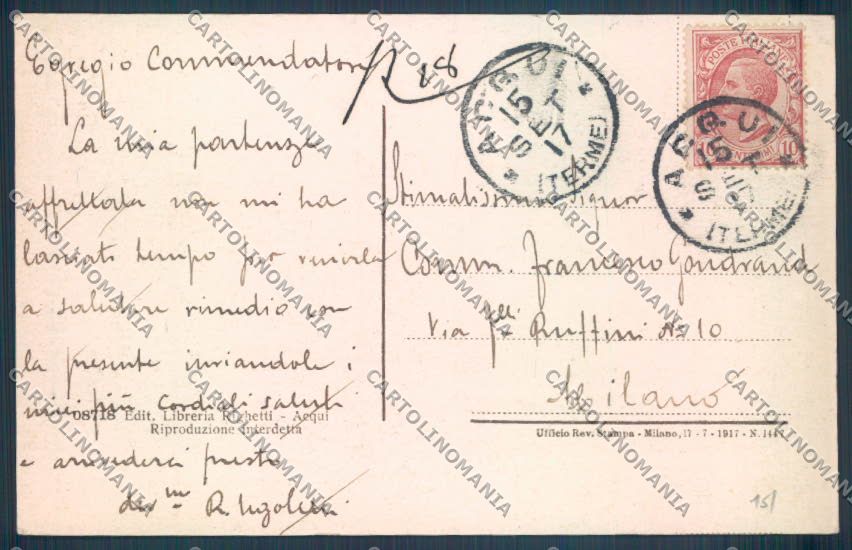 Egregio Commendatore
La mia partenza
affrettata non mi ha
lasciato tempo per venirla
a salutare rimedio con
la presente inviandole i
miei più cordiali saluti
e arrivederci presto
dev.mo R. Ugolini
08718 Edit. Libreria Righetti - Acqui
Riproduzione interdetta
18
ACQUI
15
SET
17
(TERME)
POSTE ITALIANE
10
ACQUI
15
(TERME)
Stimatissimo Signor
Comm. Francesco Gondrand
Via flli Ruffini No 10
Milano
Ufficio Rev. Stampa - Milano, 17 - 7 - 1917 - N. 1447
15/
CARTOLINOMANIA